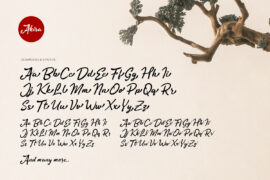 Akira
Aa Bb Cc Dd Ee Ff Gg Hh Ii
Jj Kk Ll Mm Nn Oo Pp Qq Rr
Ss Tt Uu Vv Ww Xx Yy Zz
Aa Bb Cc Dd Ee Ff Gg Hh Ii
Jj Kk Ll Mm Nn Oo Pp Qq Rr
Ss Tt Uu Vv Ww Xx Yy Zz
Aa Bb Cc Dd Ee Ff Gg Hh Ii
Jj Kk Ll Mm Nn Oo Pp Qq Rr
Ss Tt Uu Vv Ww Xx Yy Zz
And many more..